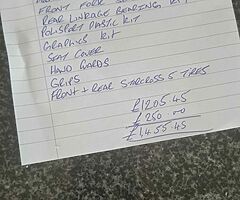 FRONT FORK S
REAR LINKAGE BEARING KIT
POLISPORT PLASTIC KIT
GRAPHICS KIT
SEAT COVER
HAND GARDS
GRIPS
FRONT + REAR STARCROSS 5 TIRES
£1205.45
£250.00
£1,455.45